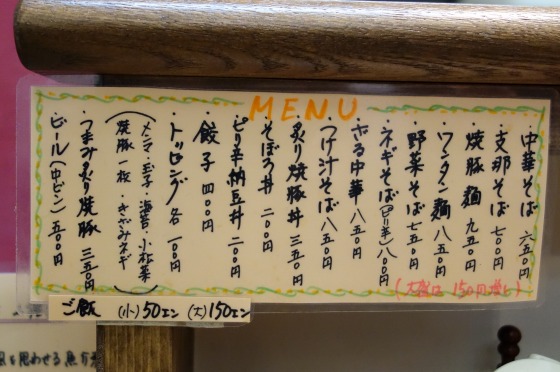 MENU
・中華そば 六五〇円
・支那そば 七〇〇円
・焼豚麺 九五〇円
・ワンタン麺 八五〇円
・野菜そば 七五〇円
・ネギそば(ピリ辛) 八〇〇円
・ざる中華 八五〇円
・つけ汁そば 八五〇円
・炙り焼豚丼 三五〇円
・そぼろ丼 二〇〇円
・ピリ辛納豆丼 二〇〇円
・餃子 四〇〇円
・トッピング各一〇〇円
(メンマ・玉子・海苔・小松菜
焼豚一枚・きざみネギ)
・つまみ炙り焼豚 三五〇円
・ビール(中ビン) 五〇〇円
(大盛は 150円増し)
ご飯 (小)50エン (大)150エン